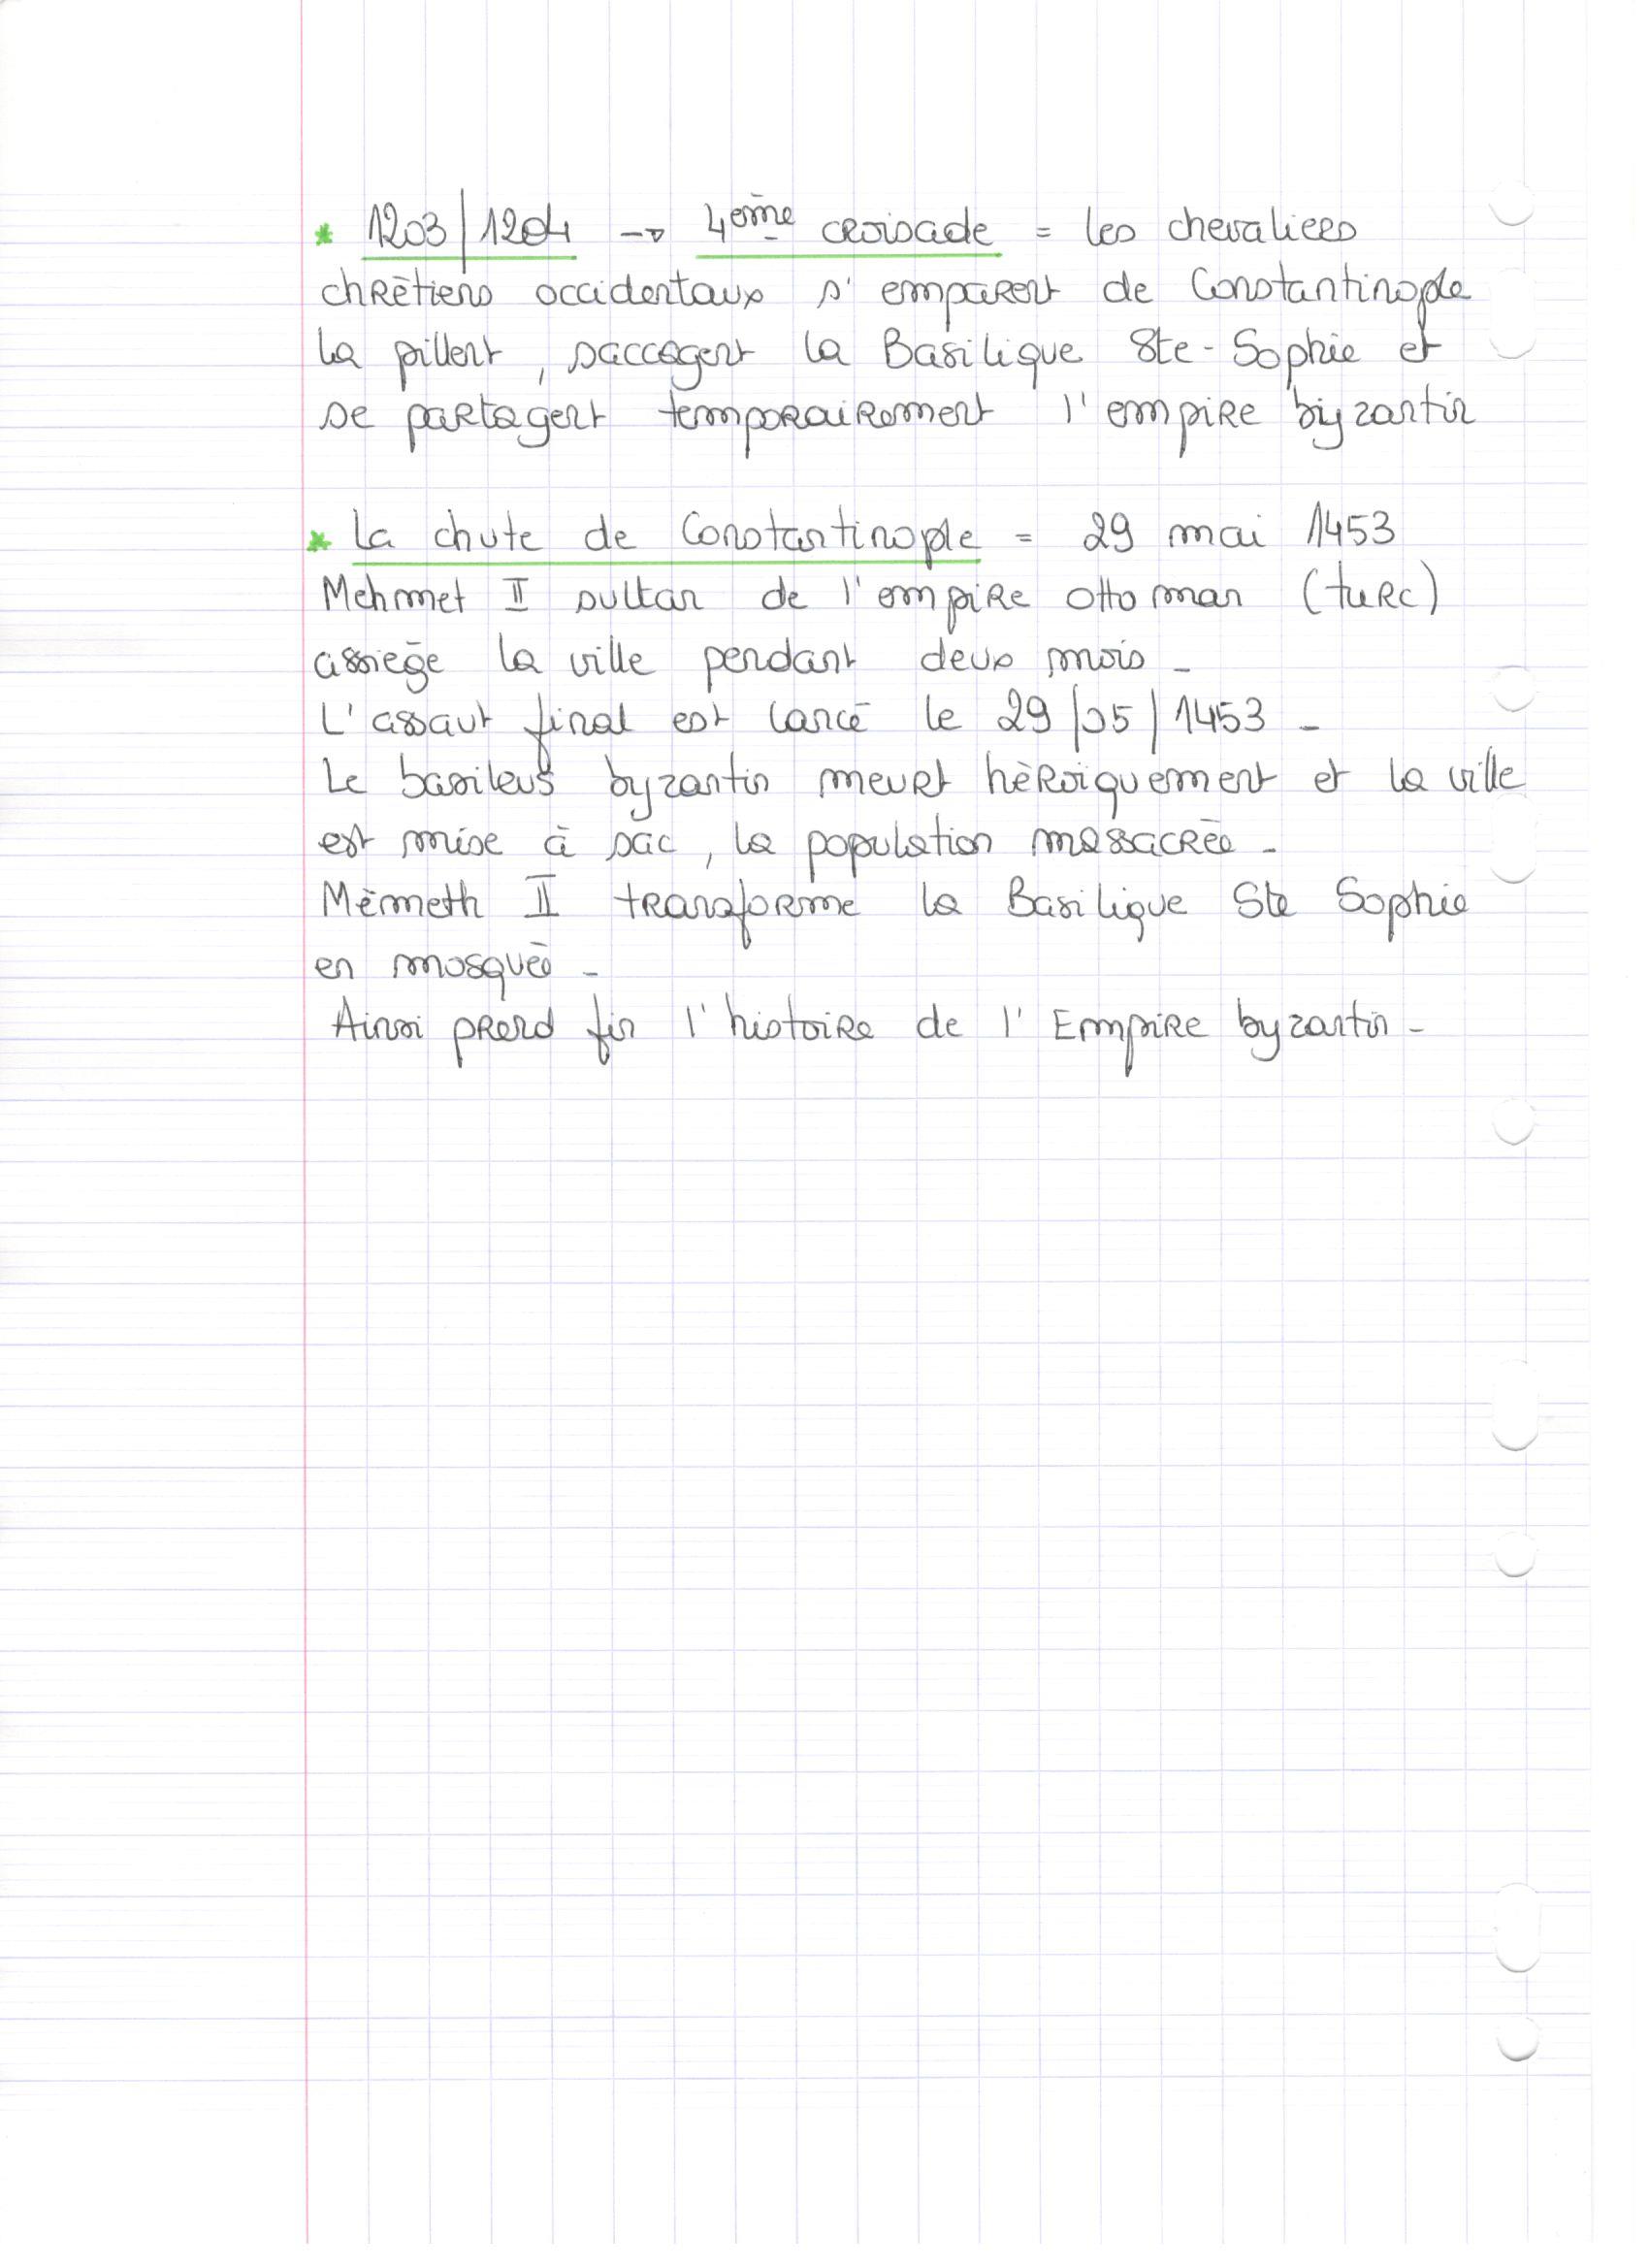 * 1203/1204 → 4ème croisade = les chevaliers
chrétiens occidentaux s'emparent de Constantinople
la pillent, saccagent la Basilique Ste-Sophie et
se partagent temporairement l'empire byzantin
* La chute de Constantinople = 29 mai 1453
Mehmet II sultan de l'empire ottoman (turc)
assiège la ville pendant deux mois -
L'assaut final est lancé le 29/05/1453 -
Le basileus byzantin meurt héroïquement et la ville
est mise à sac, la population massacrée -
Mémeth II transforme la Basilique Ste Sophie
en mosquée -
Ainsi prend fin l'histoire de l'Empire byzantin -